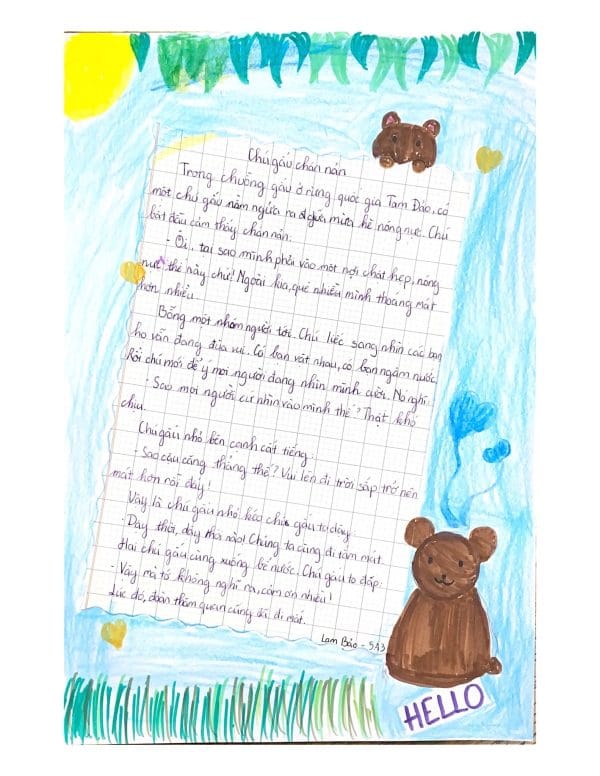 Chú gấu chán nản
Trong chuồng gấu ở rừng quốc gia Tam Đảo, có
một chú gấu nằm ngửa ra giữa mùa hè nóng nực. Chú
bắt đầu cảm thấy chán nản:
- Ôi... tại sao mình phải vào một nơi chật hẹp, nóng
nực thế này chứ! Ngoài kia, quê nhiều mình thoáng mát
hơn nhiều.
Bỗng một nhóm người tới. Chú liếc sang nhìn các bạn
họ vẫn đang đùa vui. Có bạn vật nhau, có bạn ngâm nước.
Rồi chú mới để ý mọi người đang nhìn mình cười. Nó nghĩ:
- Sao mọi người cứ nhìn vào mình thế? Thật khó
chịu.
Chú gấu nhỏ bên cạnh cất tiếng:
- Sao cậu căng thẳng thế? Vui lên đi trời sắp trở nên
mát hơn rồi đấy!
Vậy là chú gấu nhỏ kéo chú gấu to dậy:
- Dậy thôi, dậy thôi nào! Chúng ta cùng đi tắm mát.
Hai chú gấu cùng xuống bể nước. Chú gấu to đáp:
- Vậy mà tớ không nghĩ ra, cảm ơn nhiều!
Lúc đó, đoàn thăm quan cũng đã đi mất.
Lam Bảo - 5A3
HELLO